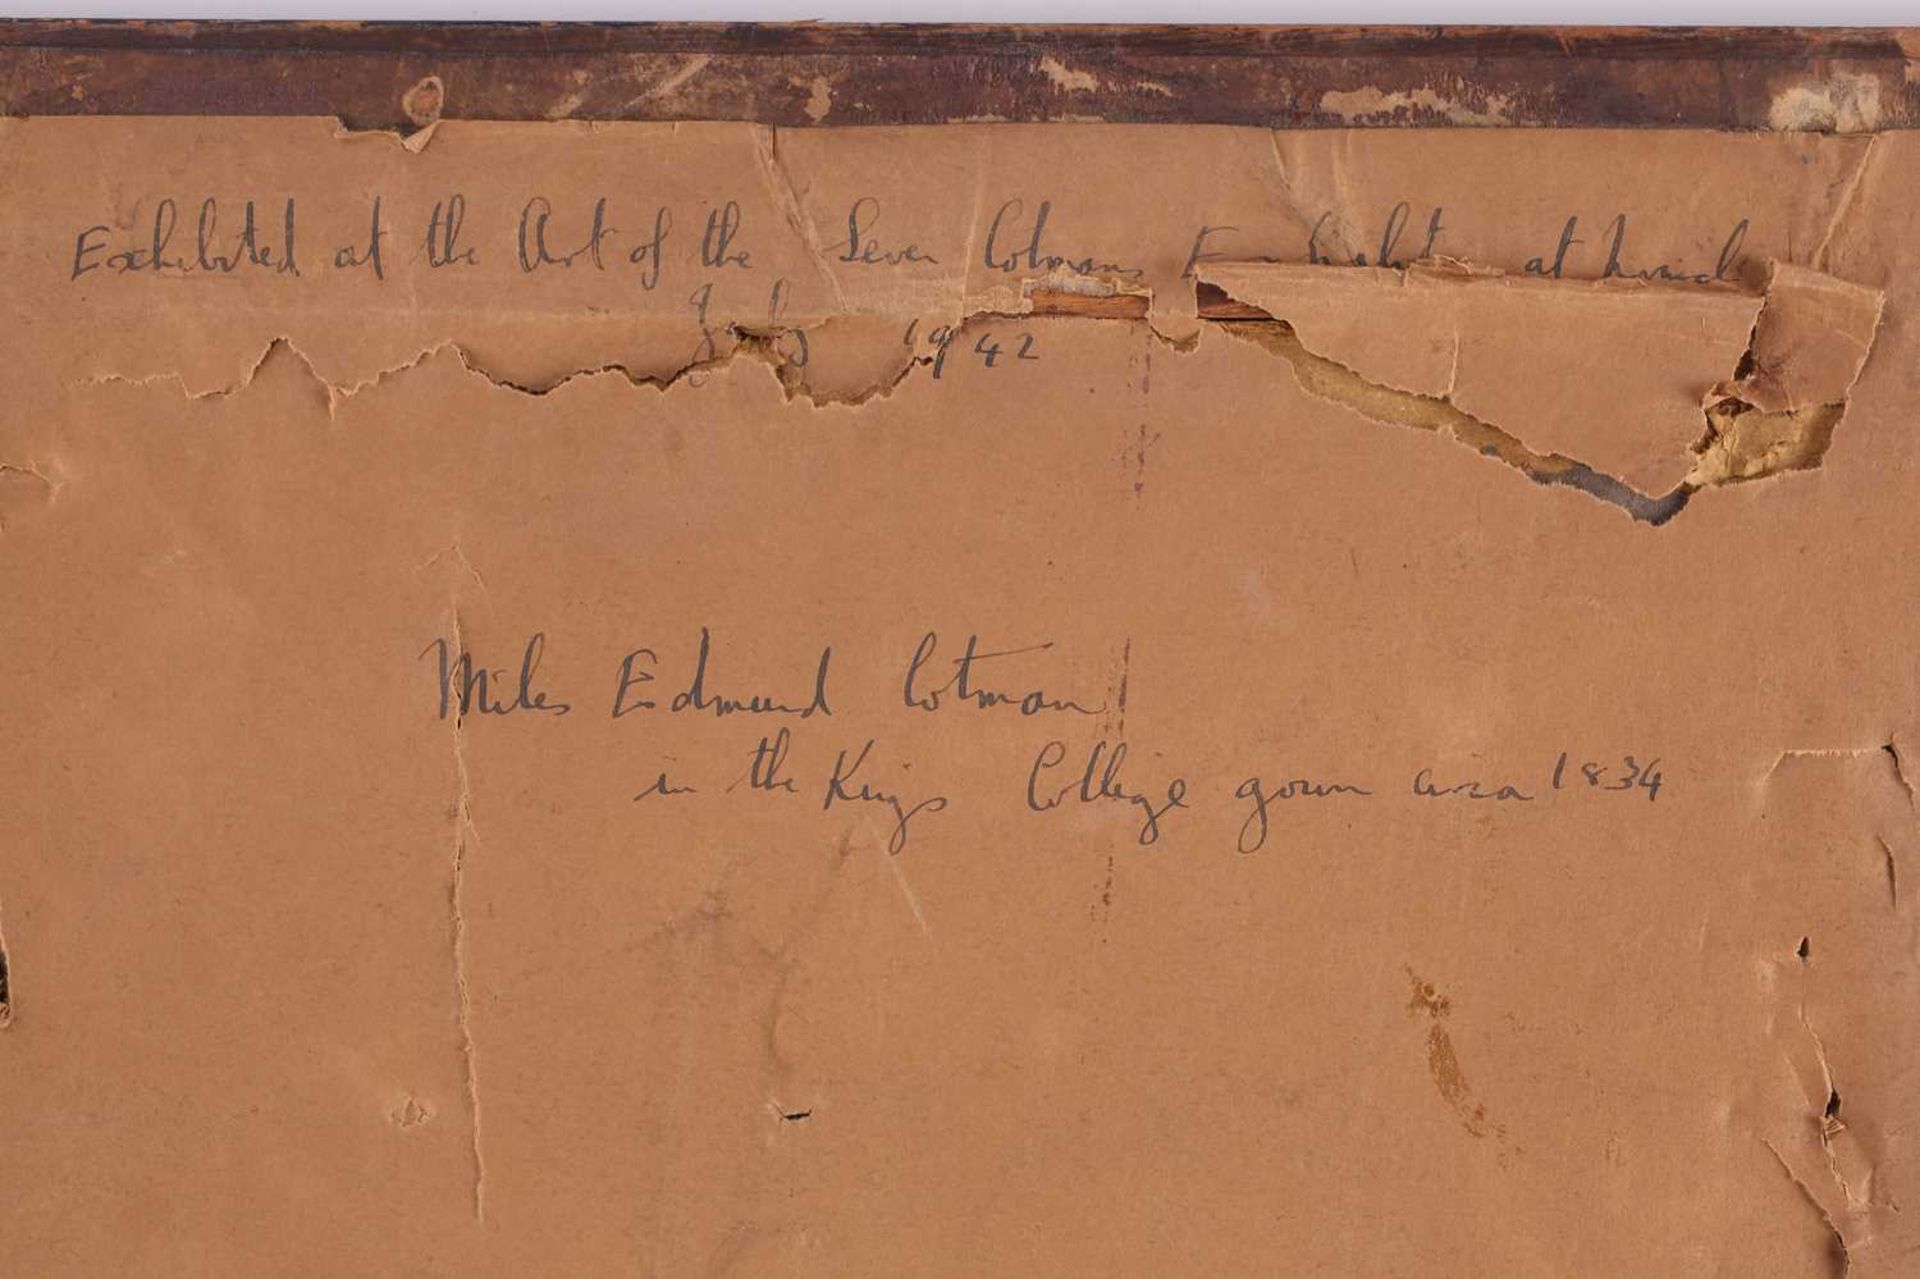 Exhibited at the Art of the Seven Cotmans at
July 1942
Miles Edmund Cotman
in the Kings College gown circa 1834